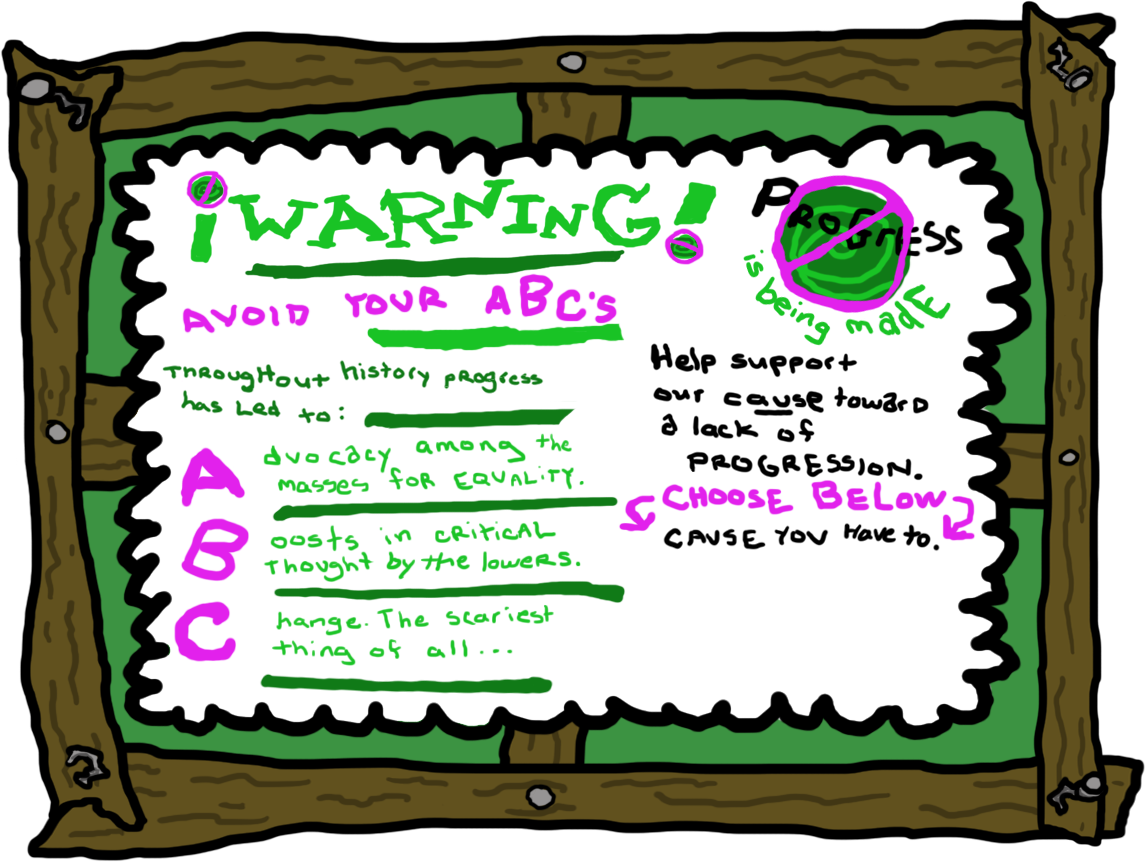 ¡WARNING!
AVOID YOUR ABC's
THROUGHOUT history progress
has Led to:
A dvocacy among the
masses foR EQUALITY.
B oosts in CRiTiCAL
THOUGHT by the lowers.
C hange. The scariest
thing of all...
PROGRESS
is being madE
Help support
our cause toward
a lack of
PROGRESSION.
CHOOSE BELOW
CAUSE YOU Have to.